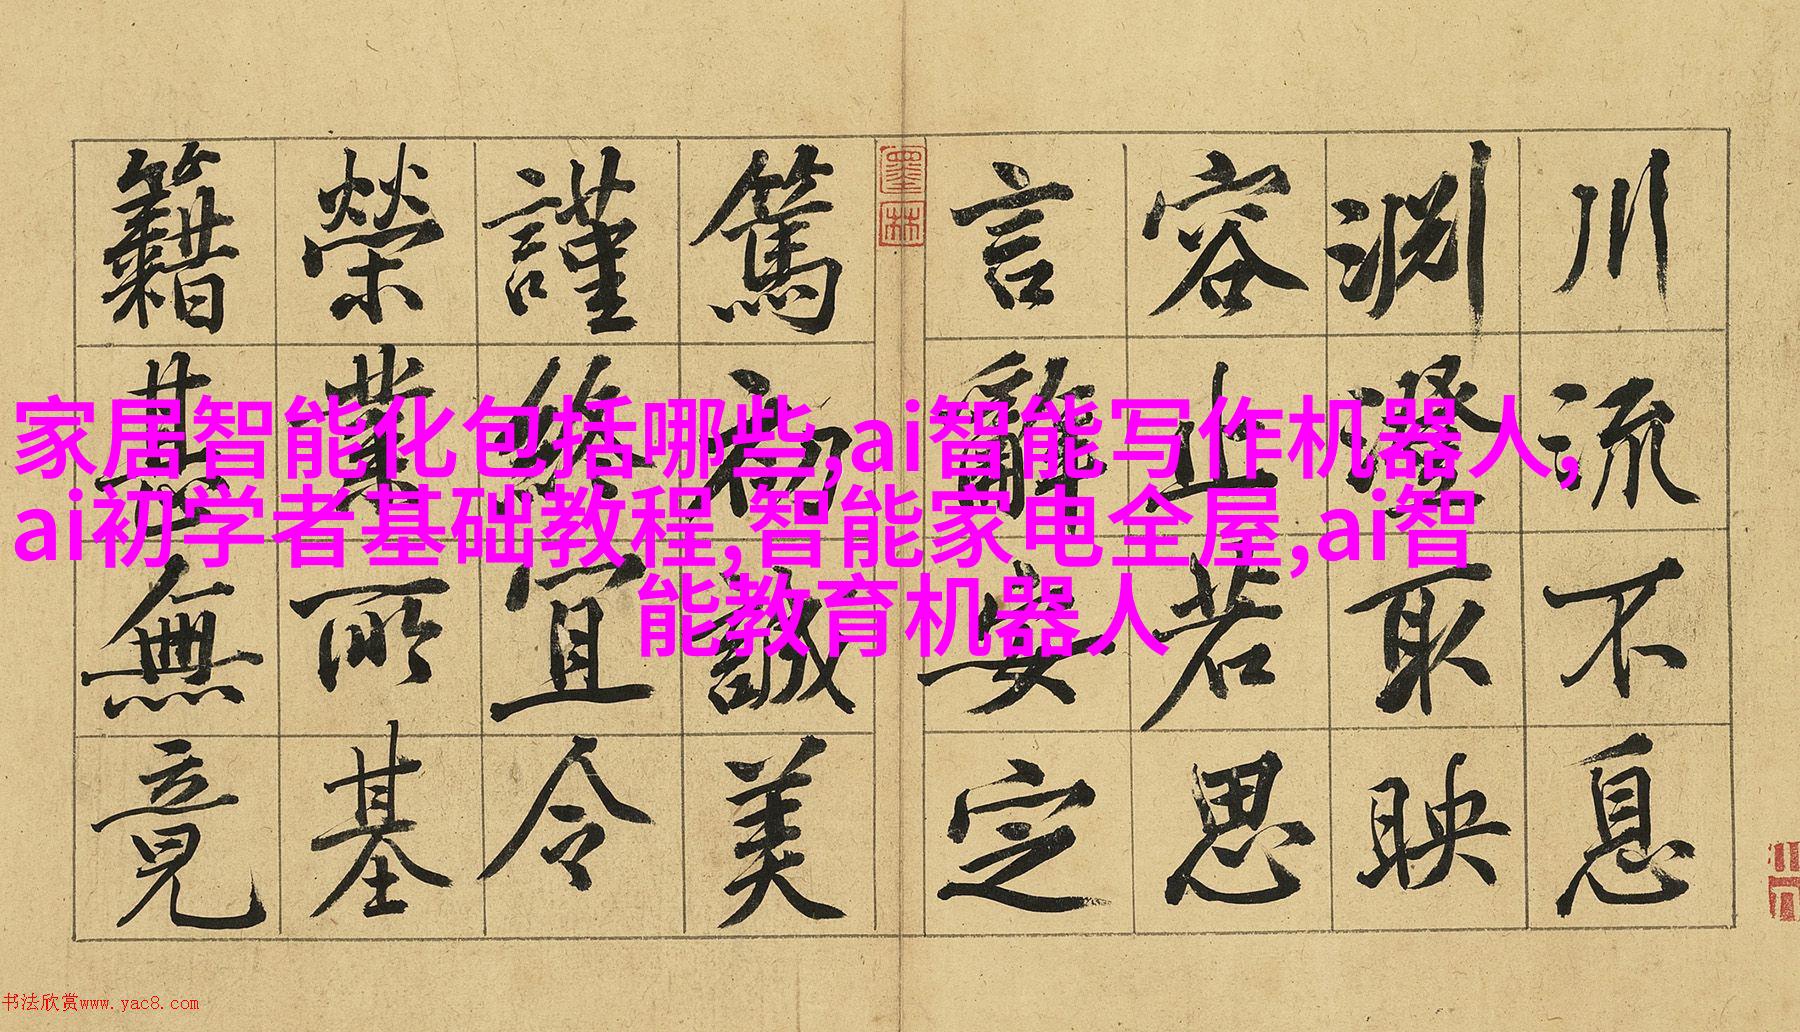 家居智能化包括哪些,ai智能写作机器人,
ai初学者基础教程,智能家电全屋,ai智
能教育机器人
川流不息
淵澄取映
容止若思
言辭安定
墨林
篤初誠美
謹終宜令
榮業所基
籍甚無竟
书法欣赏www.yac8.com